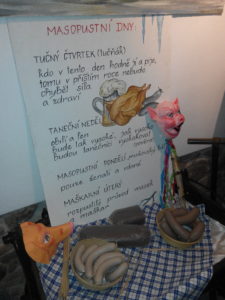 MASOPUSTNÍ DNY:
TUČNÝ ČTVRTEK (TUČŇÁK)
kdo v tento den hodně jí a pije,
tomu v příštím roce nebude
chybět síla
a zdraví
TANEČNÍ NEDĚLE
obilí a len
bude tak vysoké, jak vysoko
budou tanečníci vyskakovat
MASOPUSTNÍ PONDĚLÍ
pouze ženatí a vdané
MAŠKARNÍ ÚTERÝ
rozpustilé průvody masek
a maškar